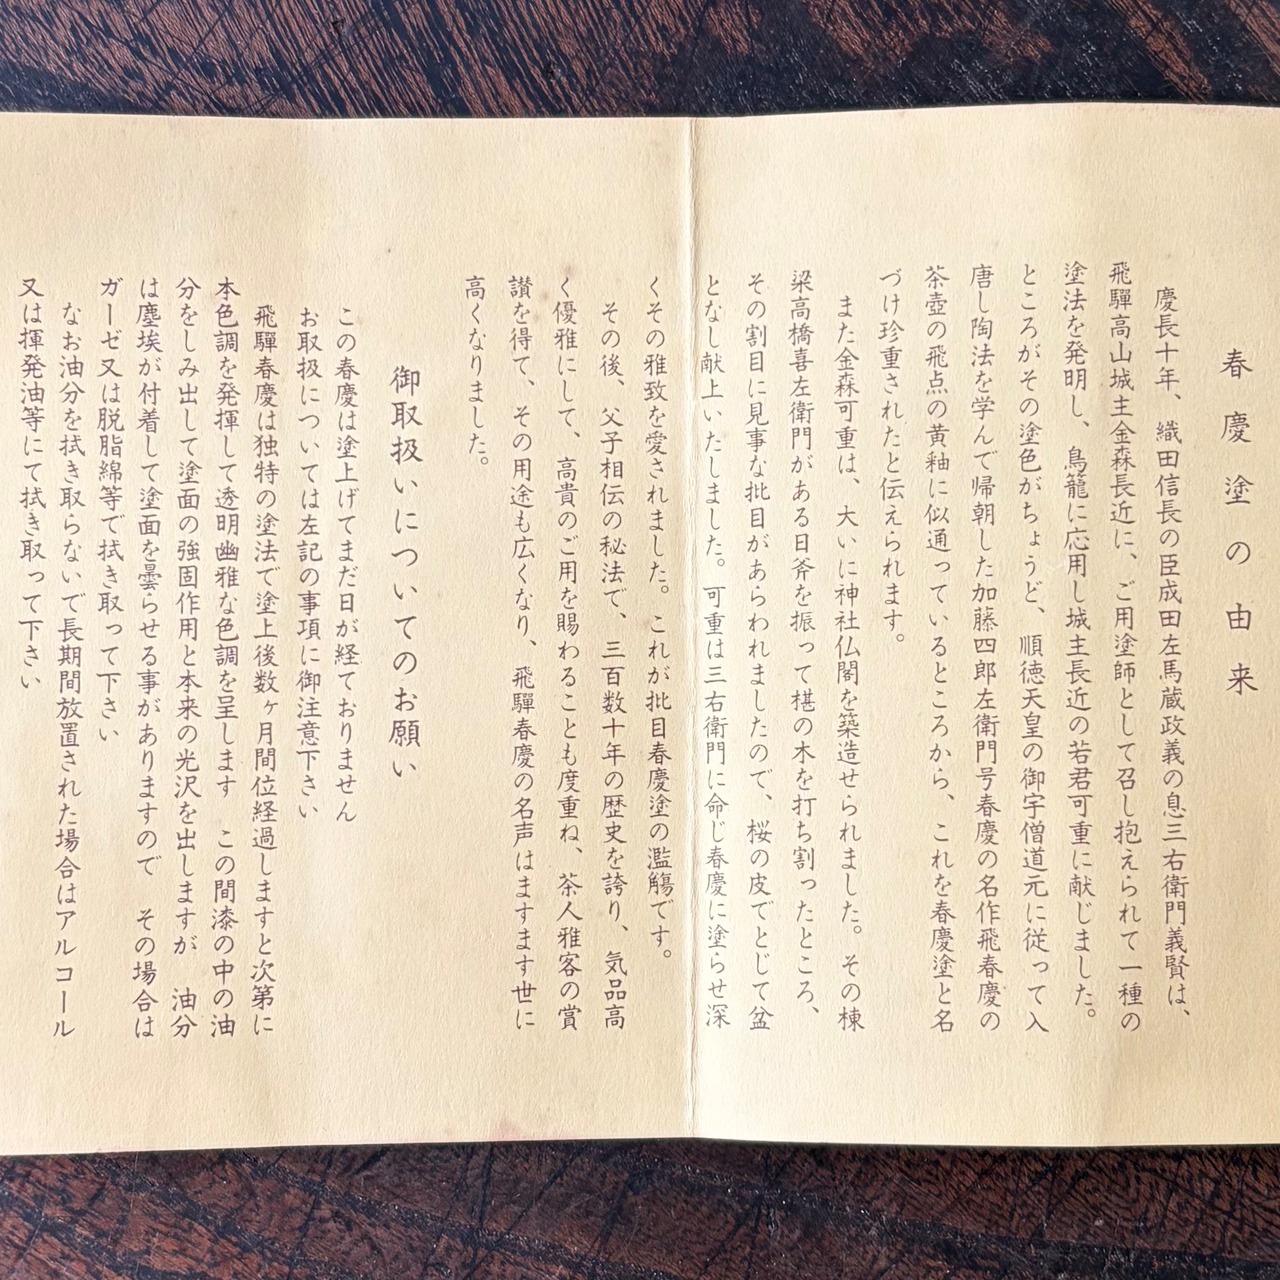 春慶塗の由来
慶長十年、織田信長の臣成田左馬蔵政義の息三右衛門義賢は、
飛驒高山城主金森長近に、ご用塗師として召し抱えられて一種の
塗法を発明し、鳥籠に応用し城主長近の若君可重に献じました。
ところがその塗色がちょうど、順徳天皇の御宇僧道元に従って入
唐し陶法を学んで帰朝した加藤四郎左衛門号春慶の名作飛春慶の
茶壺の飛点の黄釉に似通っているところから、これを春慶塗と名
づけ珍重されたと伝えられます。
また金森可重は、大いに神社仏閣を築造せられました。その棟
梁高橋喜左衛門がある日斧を振って椹の木を打ち割ったところ、
その割目に見事な批目があらわれましたので、桜の皮でとじて盆
となし献上いたしました。可重は三右衛門に命じ春慶に塗らせ深
くその雅致を愛されました。これが批目春慶塗の濫觴です。
その後、父子相伝の秘法で、三百数十年の歴史を誇り、気品高
く優雅にして、高貴のご用を賜わることも度重ね、茶人雅客の賞
讃を得て、その用途も広くなり、飛驒春慶の名声はますます世に
高くなりました。
御取扱いについてのお願い
この春慶は塗上げてまだ日が経ておりません
お取扱については左記の事項に御注意下さい
飛驒春慶は独特の塗法で塗上後数ヶ月間位経過しますと次第に
本色調を発揮して透明幽雅な色調を呈します　この間漆の中の油
分をしみ出して塗面の強固作用と本来の光沢を出しますが　油分
は塵埃が付着して塗面を曇らせる事がありますので　その場合は
ガーゼ又は脱脂綿等で拭き取って下さい
なお油分を拭き取らないで長期間放置された場合はアルコール
又は揮発油等にて拭き取って下さい